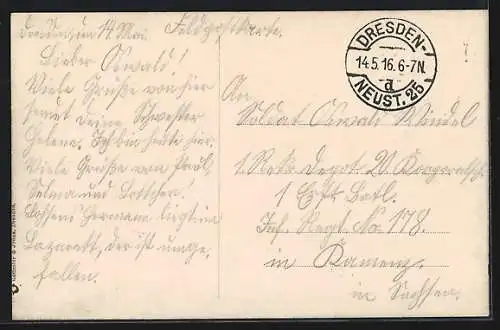 Dresden, den 14. Mai. Feldpostkarte.
Lieber Oswald!
Viele Grüße von hier
sendet Deine Schwester
Helene. Ich bin heute hier.
Viele Grüße von Paul,
Selma und
Hermann liegt im
Lazarett, der ist umge-
fallen.
DRESDEN-
14.5.16. 6-7N.
d
NEUST. 25
An
Soldat Oswald
1. Rekr. Depot
1 Ers. Batl.
Inf. Regt. No. 178.
in Kamenz
in Sachsen.